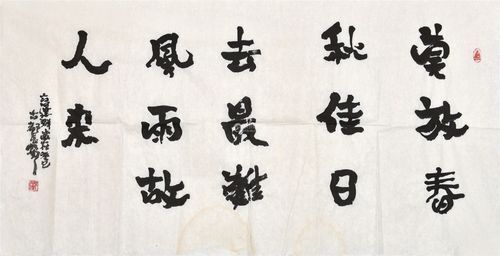 莫放春
秋佳日
去最難
風雨故
人來